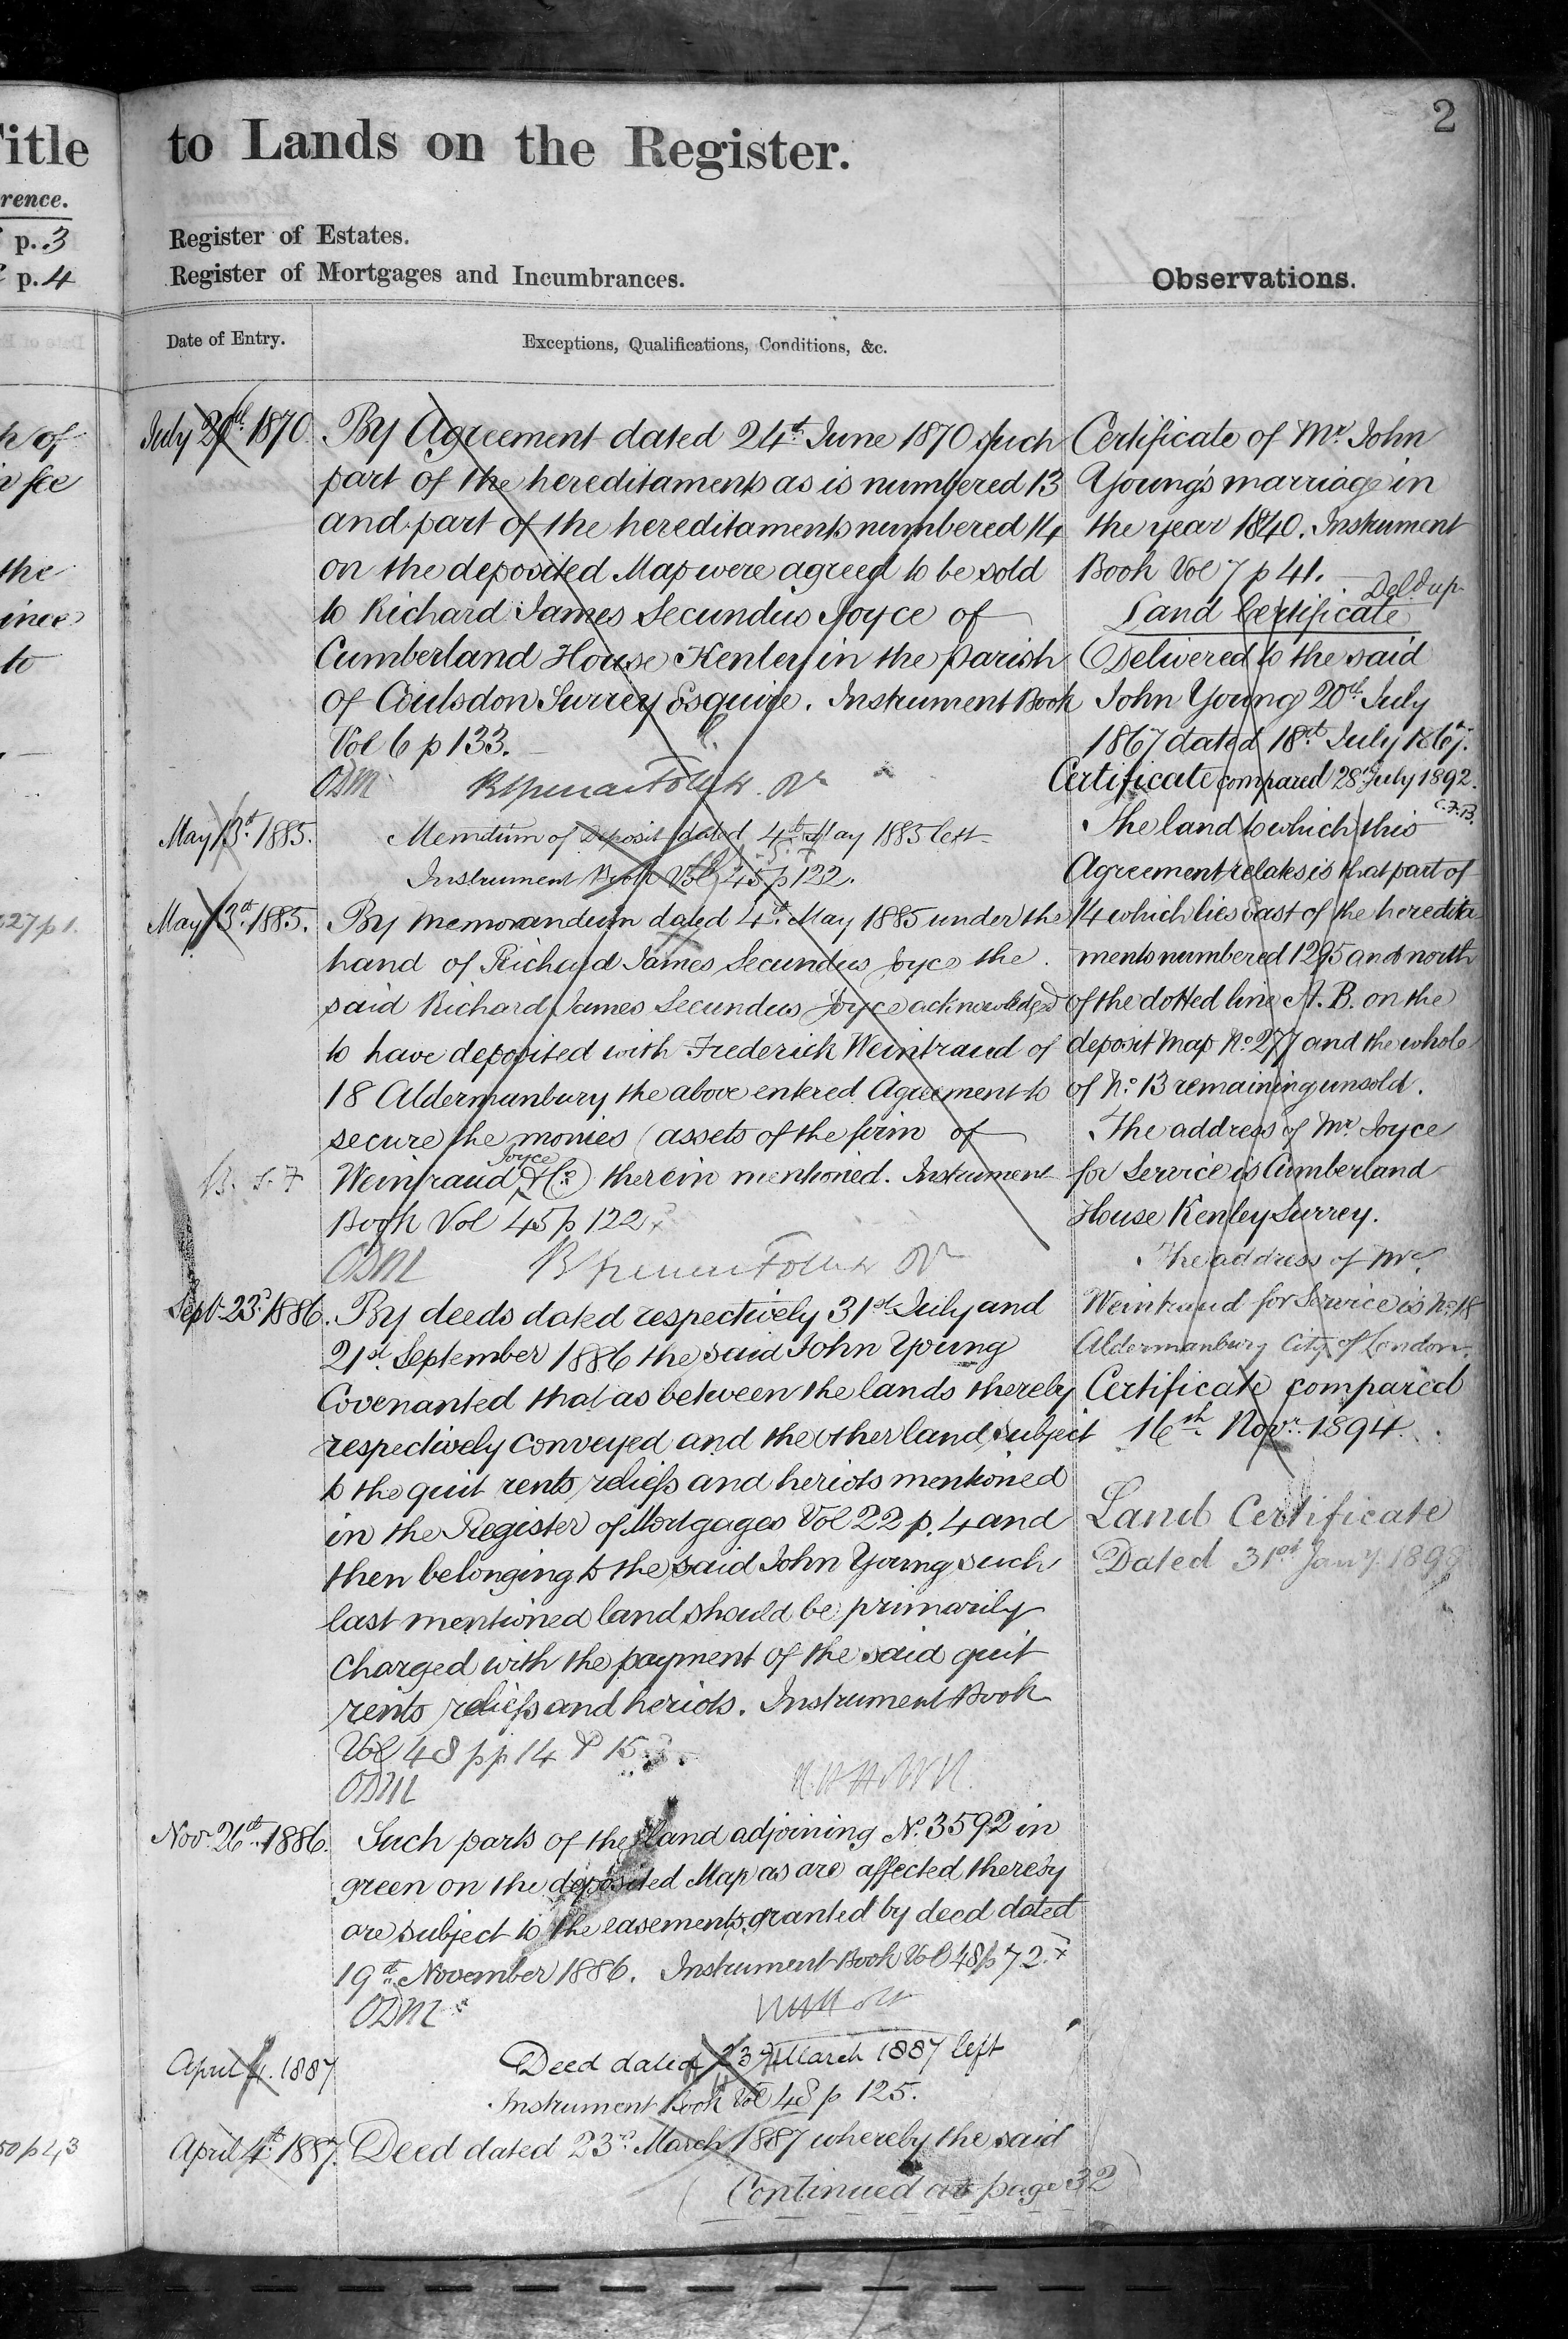 2
Title
to Lands on the Register.
rence.
p. 3
p. 4
Register of Estates.
Register of Mortgages and Incumbrances.
Observations.
Date of Entry.
Exceptions, Qualifications, Conditions, &c.
of
fee
the
to
27 p 1.
50 p 43
July 20th 1870.
By Agreement dated 24th June 1870 such
part of the hereditaments as is numbered 13
and part of the hereditaments numbered 14
on the deposited Map were agreed to be sold
to Richard James Secundus Joyce of
Cumberland House Kenley in the parish
of Coulsdon Surrey Esquire. Instrument Book
Vol 6 p 133.
ODM
May 13th 1885.
Memdum of Deposit dated 4th May 1885 left
Instrument Book Vol 45 p 122.
May 13th 1885.
By memorandum dated 4th May 1885 under the
hand of Richard James Secundus Joyce the
said Richard James Secundus Joyce acknowledged
to have deposited with Frederick Weintraud of
18 Aldermanbury the above entered Agreement to
secure the monies (assets of the firm of
Weintraud Joyce & Co) therein mentioned. Instrument
Book Vol 45 p 122
ODM
Sept 23d 1886.
By deeds dated respectively 31st July and
21st September 1886 the said John Young
Covenanted that as between the lands thereby
respectively conveyed and the other land subject
to the quit rents reliefs and heriots mentioned
in the Register of Mortgages Vol 22 p. 4 and
then belonging to the said John Young such
last mentioned land should be primarily
charged with the payment of the said quit
rents reliefs and heriots. Instrument Book
Vol 48 pp 14 & 15
ODM
Nov. 26th 1886.
Such parts of the land adjoining No. 3592 in
green on the deposited Map as are affected thereby
are subject to the easements granted by deed dated
19th November 1886. Instrument Book Vol 48 p 72.
ODM
April 4. 1887
Deed dated 23rd March 1887 left
Instrument Book Vol 48 p 125.
April 4th 1887.
Deed dated 23rd March 1887 whereby the said
(Continued at page 32)
Certificate of Mr. John
Young's marriage in
the year 1840. Instrument
Book Vol 7 p 41.
Deld up
Land Certificate
Delivered to the said
John Young 20th July
1867 dated 18th July 1867.
Certificate compared 28th July 1892.
C.F.B.
The land to which this
Agreement relates is that part of
14 which lies East of the heredita-
ments numbered 1295 and north
of the dotted line A. B. on the
deposit Map No. 277 and the whole
of No. 13 remaining unsold.
The address of Mr. Joyce
for Service is Cumberland
House Kenley Surrey.
The address of Mr.
Weintraud for Service is No. 18
Aldermanbury City of London.
Certificate compared
16th Novr. 1894.
Land Certificate
Dated 31st Jany. 1899